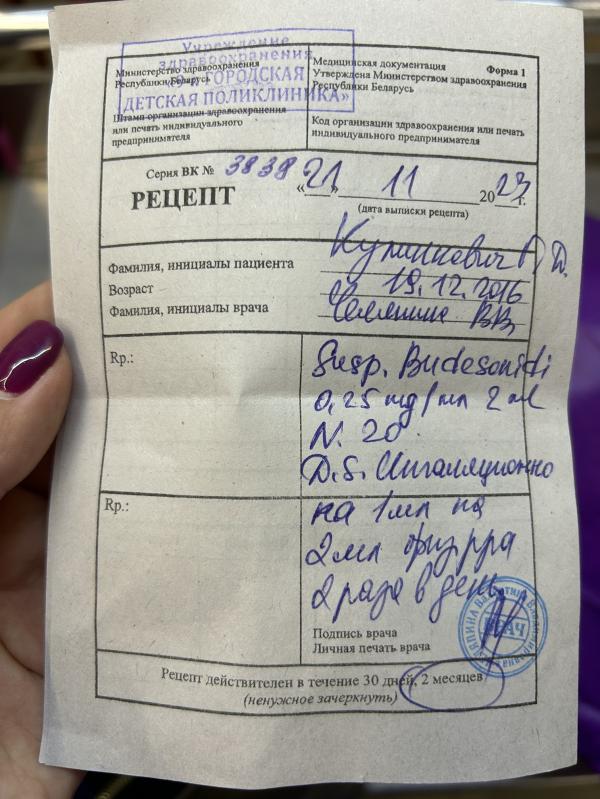 Учреждение
здравоохранения
ГОРОДСКАЯ
ДЕТСКАЯ ПОЛИКЛИНИКА»
Министерство здравоохранения
Республики Беларусь
Штамп организации здравоохранения
или печать индивидуального
предпринимателя
Медицинская документация Форма 1
Утверждена Министерством здравоохранения
Республики Беларусь
Код организации здравоохранения или печать
индивидуального предпринимателя
Серия ВК № 3838
РЕЦЕПТ
«21» 11 2023г.
(дата выписки рецепта)
Фамилия, инициалы пациента
Возраст 19.12.2016
Фамилия, инициалы врача ВВ
Rp.: Susp. Budesonidi
0,25 mg/мл 2 ml
N. 20
D.S. Ингаляционно
Rp.: на 1мл на
2мл физ.р-ра
2 раза в день
Подпись врача
Личная печать врача
ВРАЧ
Рецепт действителен в течение 30 дней, 2 месяцев
(ненужное зачеркнуть)